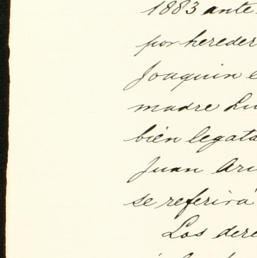 1883 ante
por hereder
Joaquin e
madre Lu
bién legata
Juan Ari
se referirá
Los dere